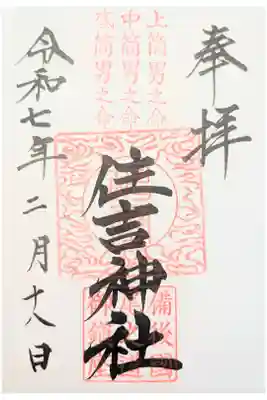 奉拝
上筒男之命
中筒男之命
底筒男之命
住吉神社
備後國
令和七年二月十八日